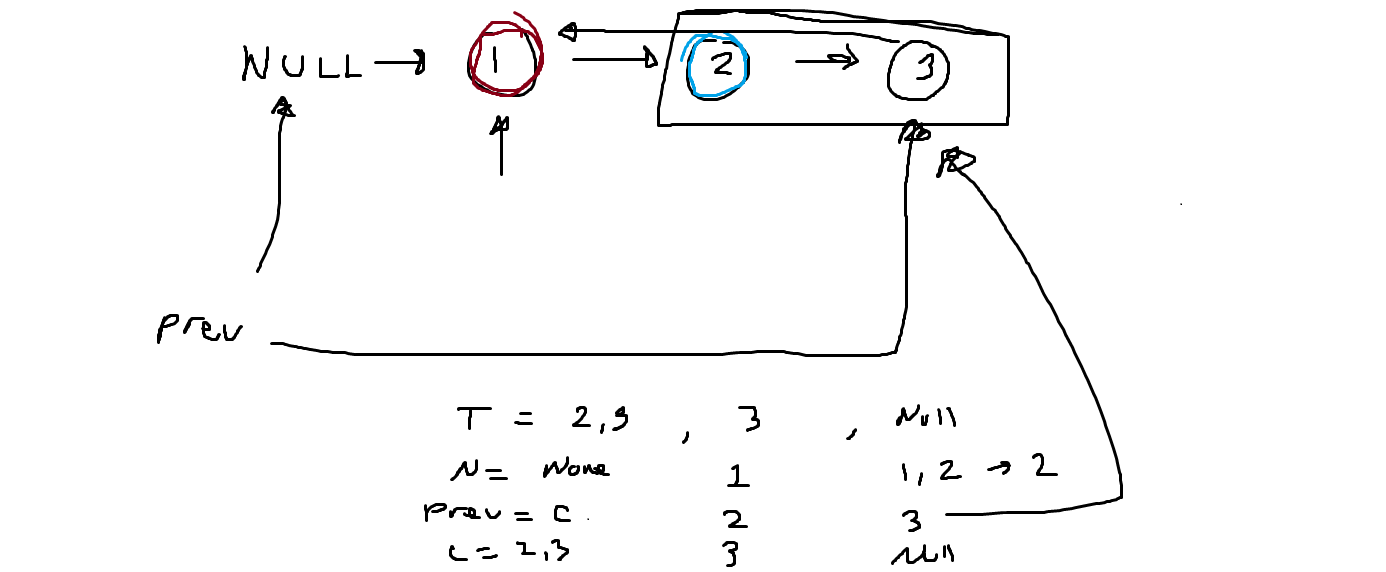 NULL → 1 → 2 → 3
prev
T = 2,3 , 3 , Null
N = None 1 1, 2 → 2
Prev = C . 2 3
C = 2,3 3 Null